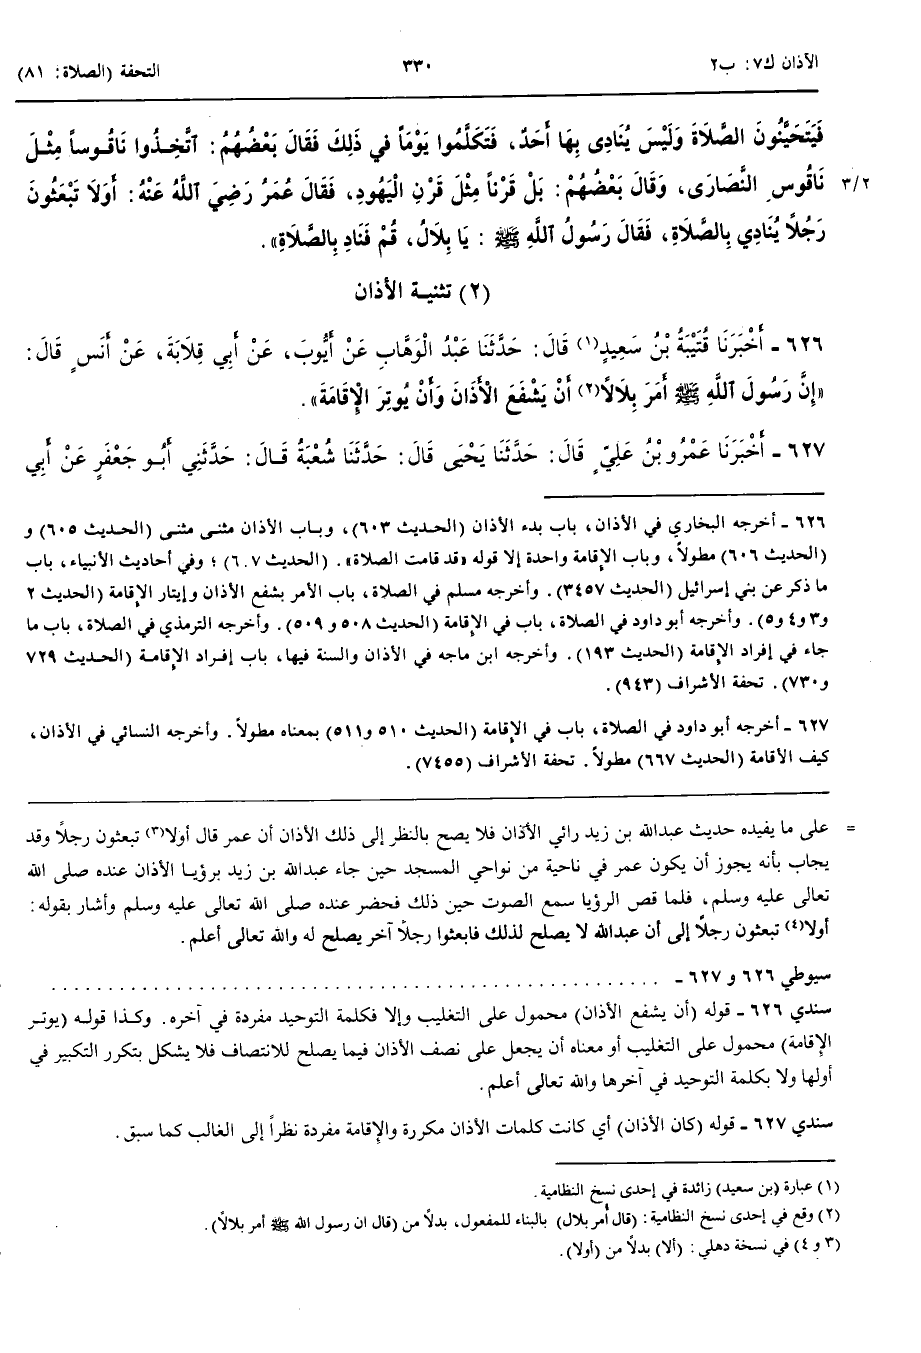 الآذان ك٧: ب٢ ٣٣٠ التحفة (الصلاة: ٨١)
فَيَتَحَيَّنُونَ الصَّلَاةَ وَلَيْسَ يُنَادِي بِهَا أَحَدٌ، فَتَكَلَّمُوا يَوْمَاً في ذَلِكَ فَقَالَ بَعْضُهُمُ: ٱتَّخِذُوا نَاقُوساً مِثْلَ
٣/٢ نَاقُوسِ النَّصَارَى، وَقَالَ بَعْضُهُمْ: بَلْ قَرْناً مِثْلَ قَرْنِ الْيَهُودِ، فَقَالَ عُمَرُ رَضِيَ اللَّهُ عَنْهُ: أَوَلَا تَبْعَثُونَ
رَجُلاً يُنَادِي بِالصَّلَاةِ، فَقَالَ رَسُولُ اللَّهِ ﷺ : يَا بِلَالُ، قُمْ فَنَادِ بِالصَّلَاةِ».
(٢) تثنية الأذان
٦٢٦ ـ أَخْبَرَنَا قُتَيْبَةُ بْنُ سَعِيدٍ(١) قَالَ: حَدَّثَنَا عَبْدُ الْوَهَّابِ عَنْ أَيُّوبَ، عَنْ أَبِي قِلَابَةَ، عَنْ أَنَسٍ قَالَ:
«إِنَّ رَسُولَ ٱللَّهِ ﷺ أَمَرَ بِلَالاً(٢) أَنْ يَشْفَعَ الْأَذَانَ وَأَنْ يُوتِرَ الْإِقَامَةَ».
٦٢٧ ـ أَخْبَرَنَا عَمْرُو بْنُ عَلِيٍّ قَالَ: حَدَّثَنَا يَحْيَى قَالَ: حَدَّثَنَا شُعْبَةُ قَالَ: حَدَّثَنِي أَبُو جَعْفَرٍ عَنْ أَبِي
٦٢٦ ـ أخرجه البخاري في الأذان، باب بدء الأذان (الحديث ٦٠٣)، وباب الأذان مثنى مثنى (الحديث ٦٠٥) و
(الحديث ٦٠٦) مطولاً، وباب الإقامة واحدة إلا قوله «قد قامت الصلاة». (الحديث ٦٠٧) ؛ وفي أحاديث الأنبياء، باب
ما ذكر عن بني إسرائيل (الحديث ٣٤٥٧). وأخرجه مسلم في الصلاة، باب الأمر بشفع الأذان وإيتار الإقامة (الحديث ٢
و٣ و٤ و٥). وأخرجه أبو داود في الصلاة، باب في الإقامة (الحديث ٥٠٨ و ٥٠٩). وأخرجه الترمذي في الصلاة، باب ما
جاء في إفراد الإقامة (الحديث ١٩٣). وأخرجه ابن ماجه في الأذان والسنة فيها، باب إفراد الإقامة (الحديث ٧٢٩
و٧٣٠). تحفة الأشراف (٩٤٣).
٦٢٧ ـ أخرجه أبو داود في الصلاة، باب في الإقامة (الحديث ٥١٠ و٥١١) بمعناه مطولاً. وأخرجه النسائي في الأذان،
كيف الأقامة (الحديث ٦٦٧) مطولاً. تحفة الأشراف (٧٤٥٥).
= على ما يفيده حديث عبدالله بن زيد رائي الأذان فلا يصح بالنظر إلى ذلك الأذان أن عمر قال أولا(٣) تبعثون رجلاً وقد
يجاب بأنه يجوز أن يكون عمر في ناحية من نواحي المسجد حين جاء عبدالله بن زيد برؤيا الأذان عنده صلى الله
تعالى عليه وسلم، فلما قص الرؤيا سمع الصوت حين ذلك فحضر عنده صلى الله تعالى عليه وسلم وأشار بقوله:
أولا(٤) تبعثون رجلاً إلى أن عبدالله لا يصلح لذلك فابعثوا رجلاً آخر يصلح له والله تعالى أعلم.
سيوطي ٦٢٦ و ٦٢٧ ـ ............................................................
سندي ٦٢٦ ـ قوله (أن يشفع الأذان) محمول على التغليب وإلا فكلمة التوحيد مفردة في آخره. وكذا قوله (يوتر
الإقامة) محمول على التغليب أو معناه أن يجعل على نصف الأذان فيما يصلح للانتصاف فلا يشكل بتكرر التكبير في
أولها ولا بكلمة التوحيد في آخرها والله تعالى أعلم.
سندي ٦٢٧ ـ قوله (كان الأذان) أي كانت كلمات الأذان مكررة والإقامة مفردة نظراً إلى الغالب كما سبق.
(١) عبارة (بن سعيد) زائدة في إحدى نسخ النظامية.
(٢) وقع في إحدى نسخ النظامية: (قال أُمر بلال) بالبناء للمفعول، بدلاً من (قال ان رسول الله ﷺ أمر بلالاً).
(٣ و ٤) في نسخة دهلي: (ألا) بدلاً من (أولا).